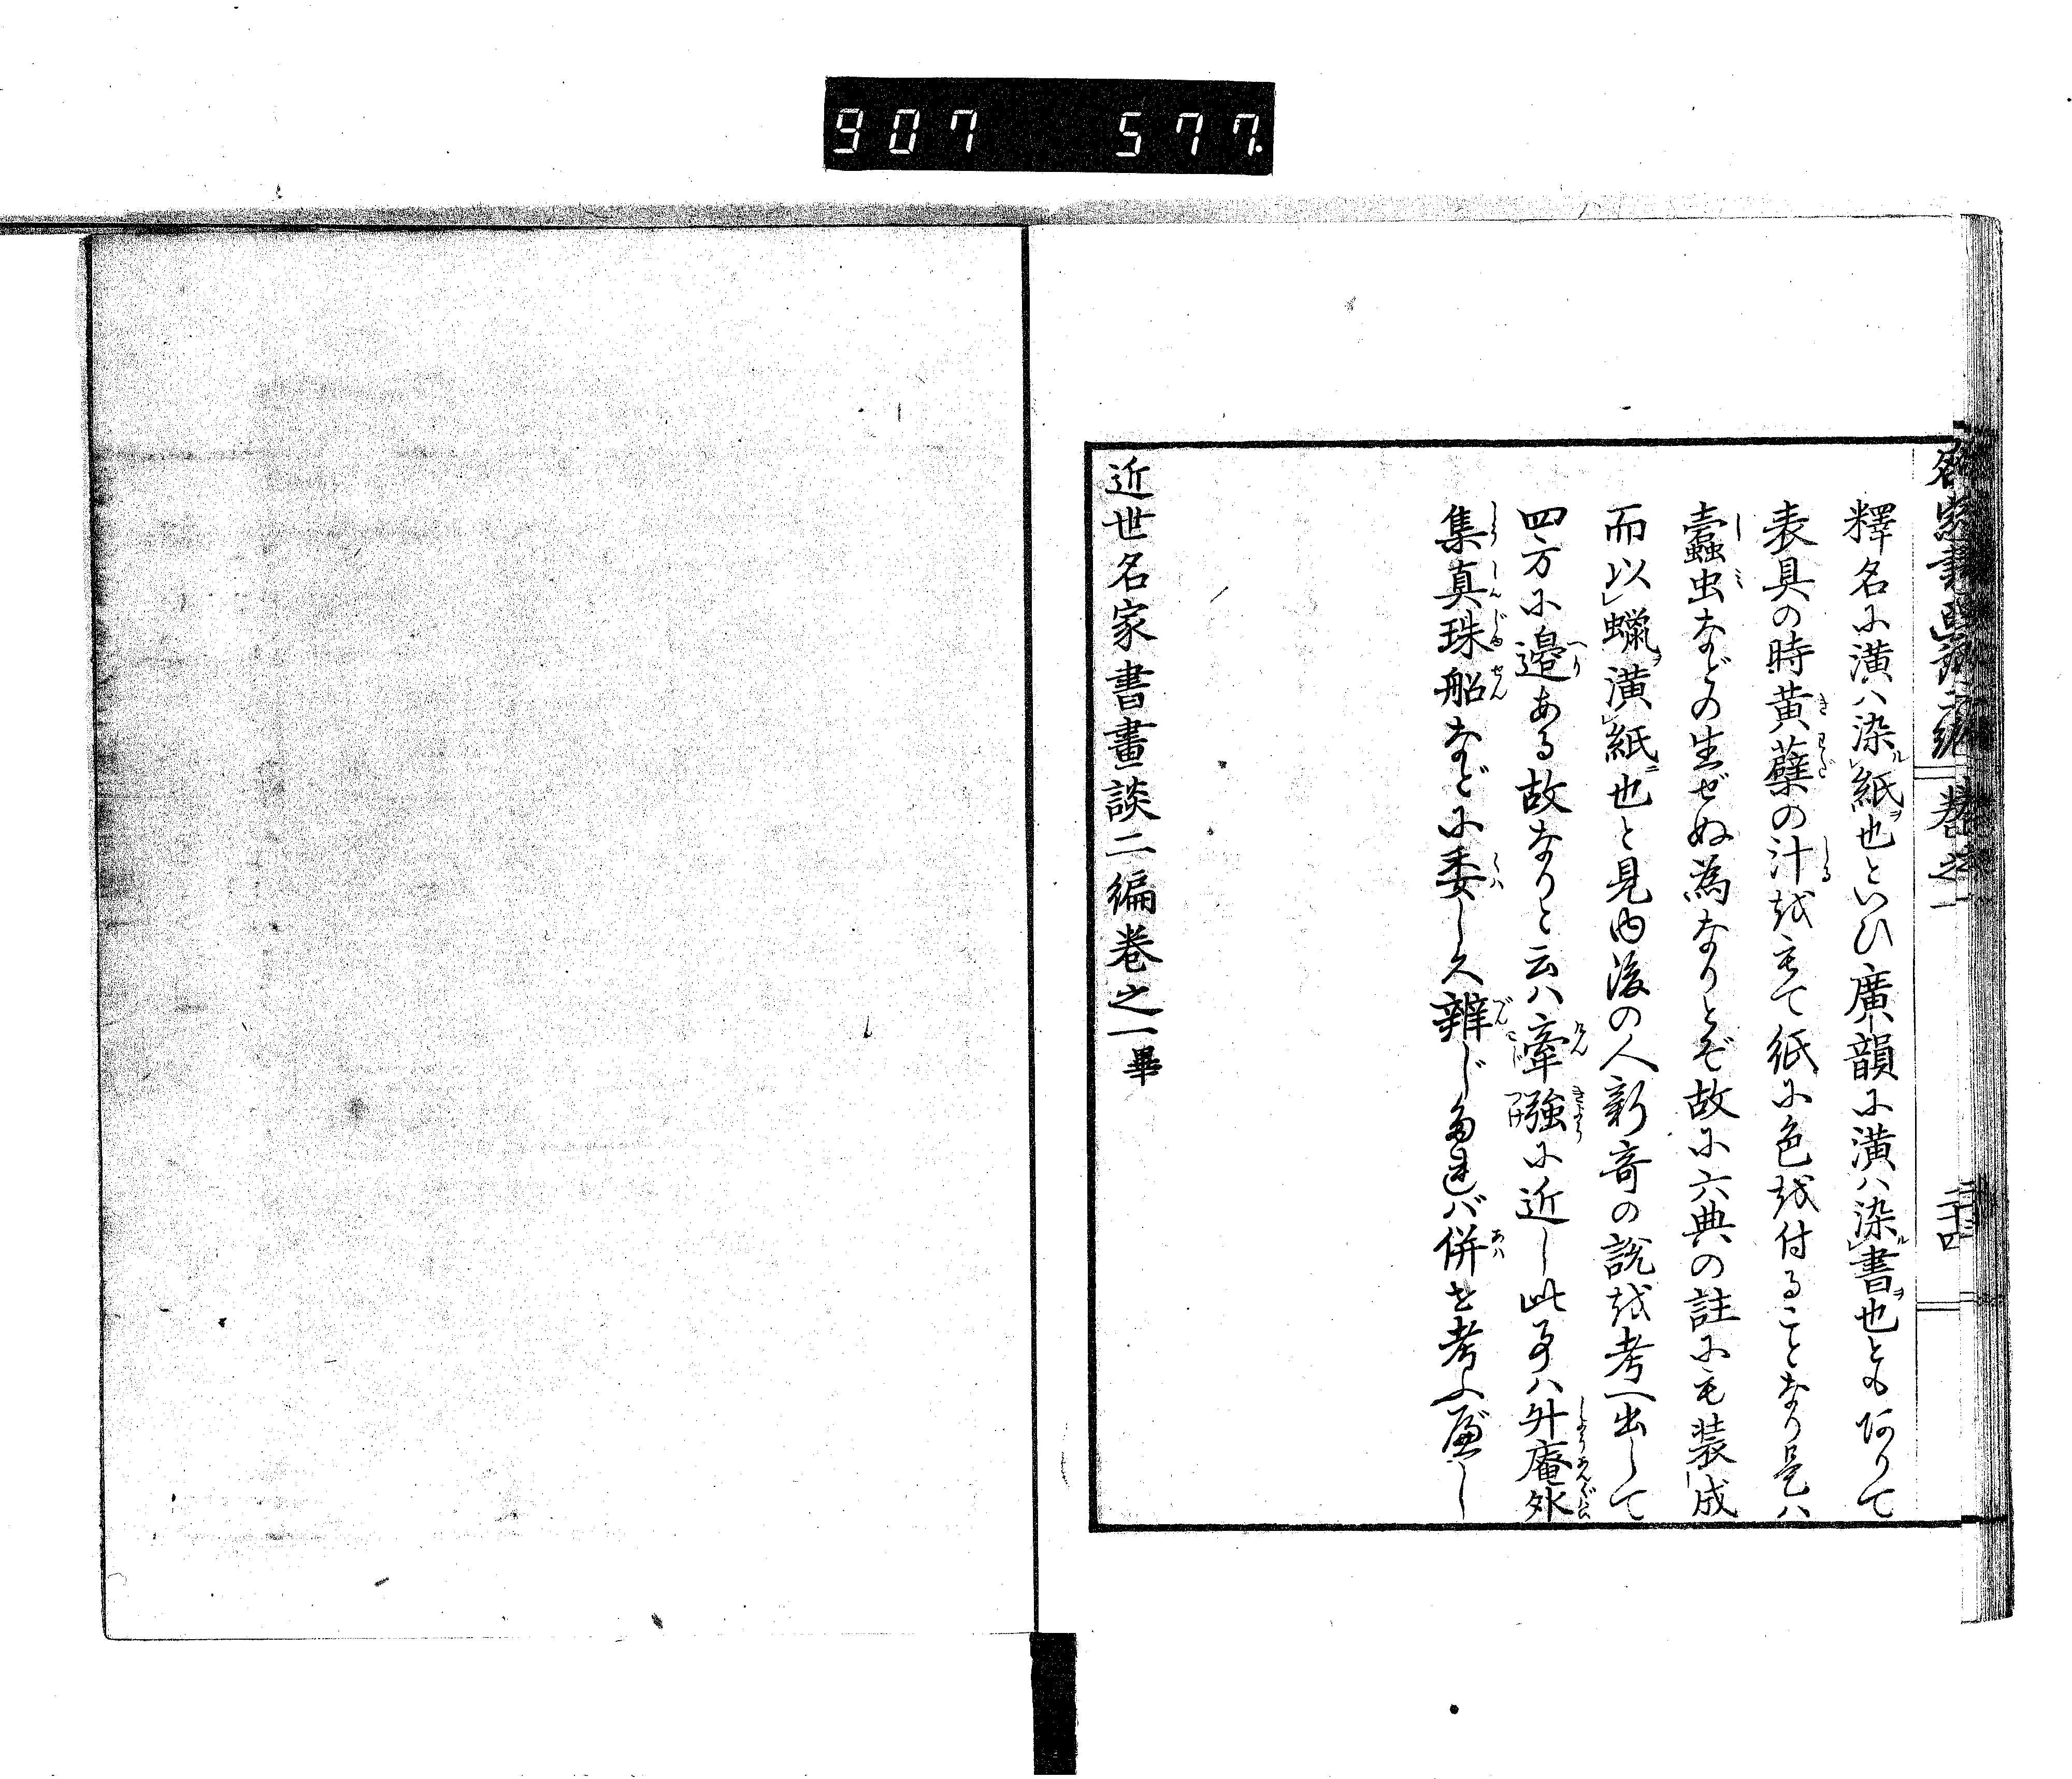 907 577.
釋名に潢ハ染ル紙ヲ也といひ廣韻に潢ハ染ル書ヲ也ともありて
表具の時黄蘗の汁をもて紙に色を付ることなり是ハ
蠹虫などの生ぜぬ為なりとぞ故に六典の註にも装成
而以蠟ヲ潢紙ニ也と見ゆ後の人新奇の説を考へ出して
四方に邉ある故なりと云ハ牽強に近し此事ハ升庵外
集真珠船などに委しく辨じたれバ併せ考ふべし
近世名家書畫談二編巻之一畢